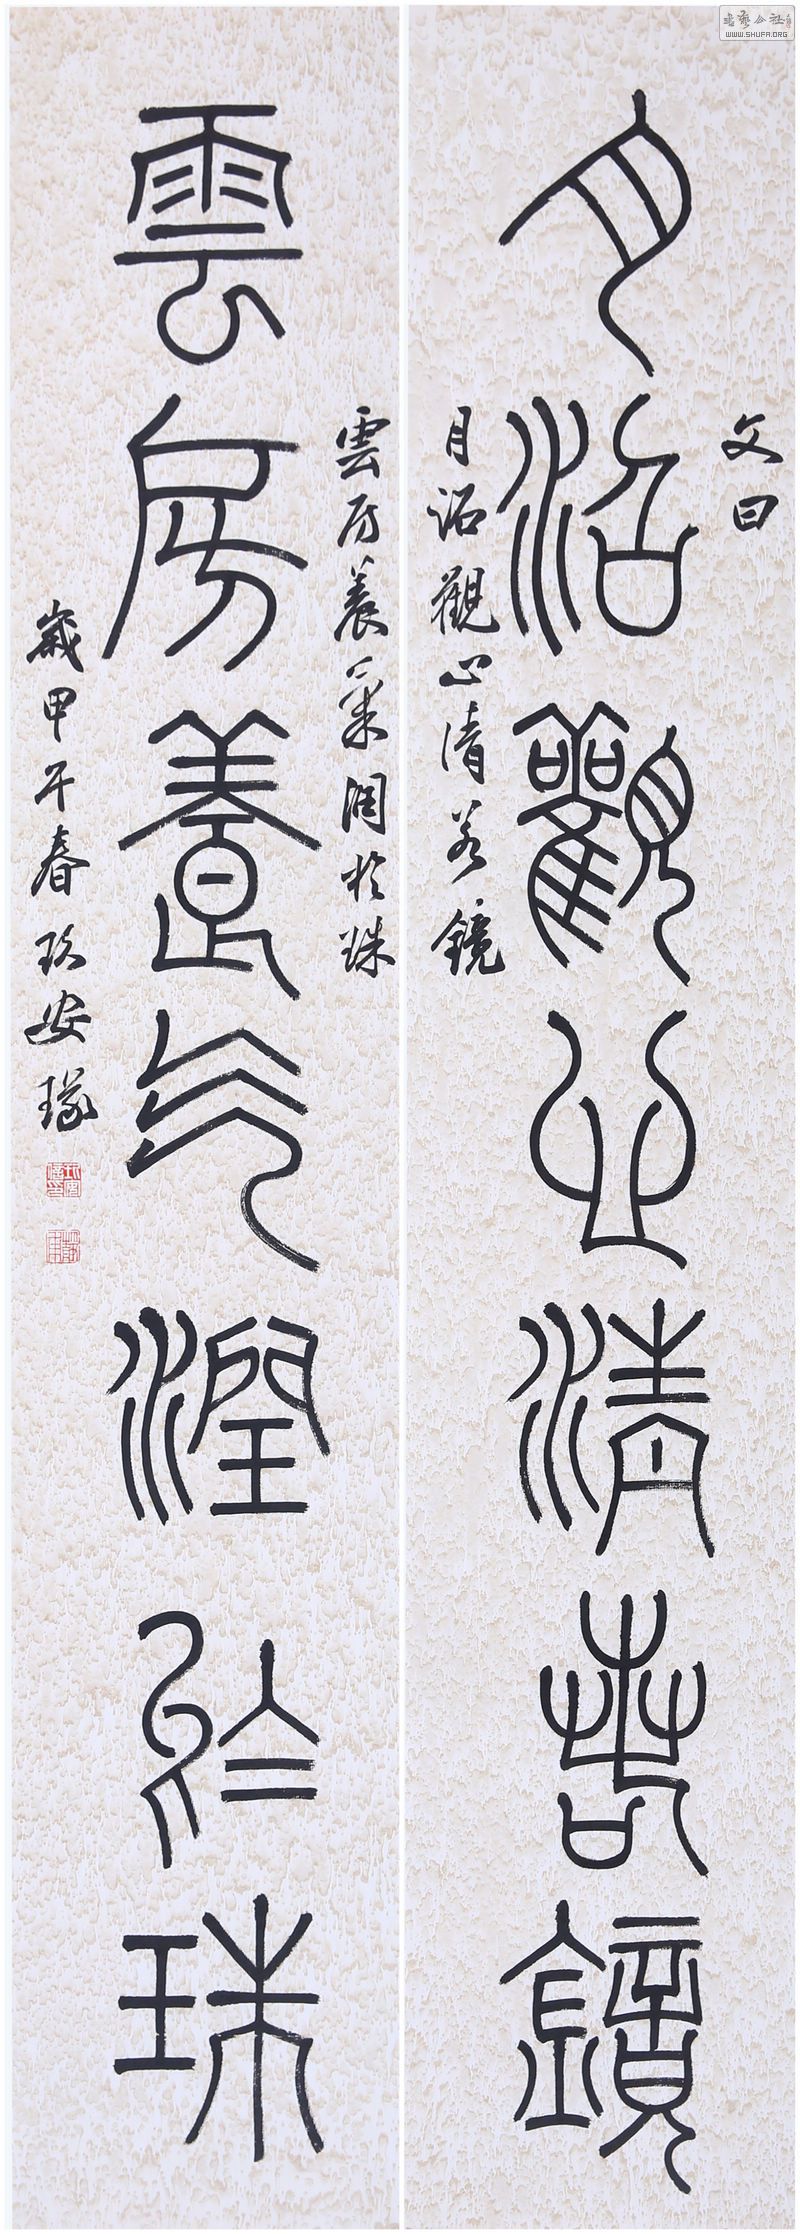 書藝公社
WWW.SHUFA.ORG
文曰
月沼觀心清若鏡
月沼觀心清若鏡
雲房養氣潤於珠
雲房養气潤於珠
歲甲午春玖安